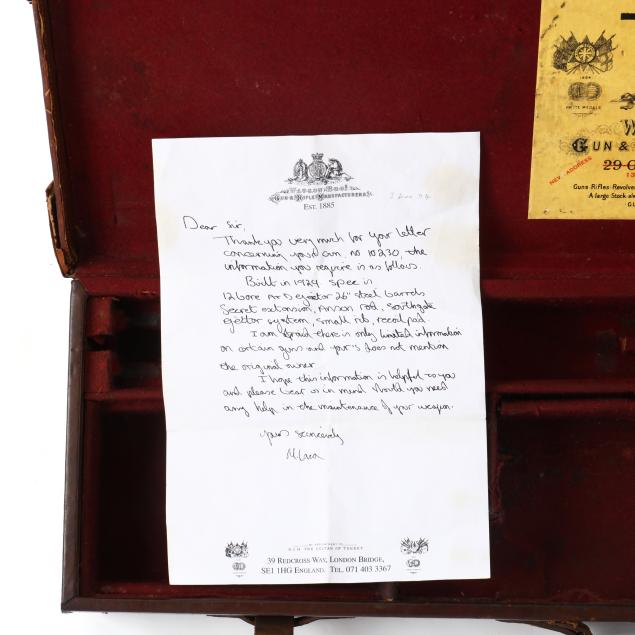 Gun & Rifle Manufacturers
EST. 1885
Dear Sir,
Thankyou very much for your letter
concerning your Gun. no 10230, the
information you require is as follows.
Built in 1924 spec is
12 bore A+D ejector 26" steel barrels
Secret extension, Anson rod, southgate
ejector system, small rib, recoil pad.
I am afraid there is only limited information
on certain guns and your's does not mention
the original owner.
I hope this information is helpful to you
and please bear us in mind should you need
any help in the maintenance of your weapon.
yours sincerely
BY APPOINTMENT TO
H.I.M. THE SULTAN OF TURKEY
39 REDCROSS WAY, LONDON BRIDGE,
SE1 1HG ENGLAND. TEL. 071 403 3367
1884
WHITE MEDALS
W
GUN &
NEW ADDRESS
29
13
Guns-Rifles-Revolve
A large Stock al
GU